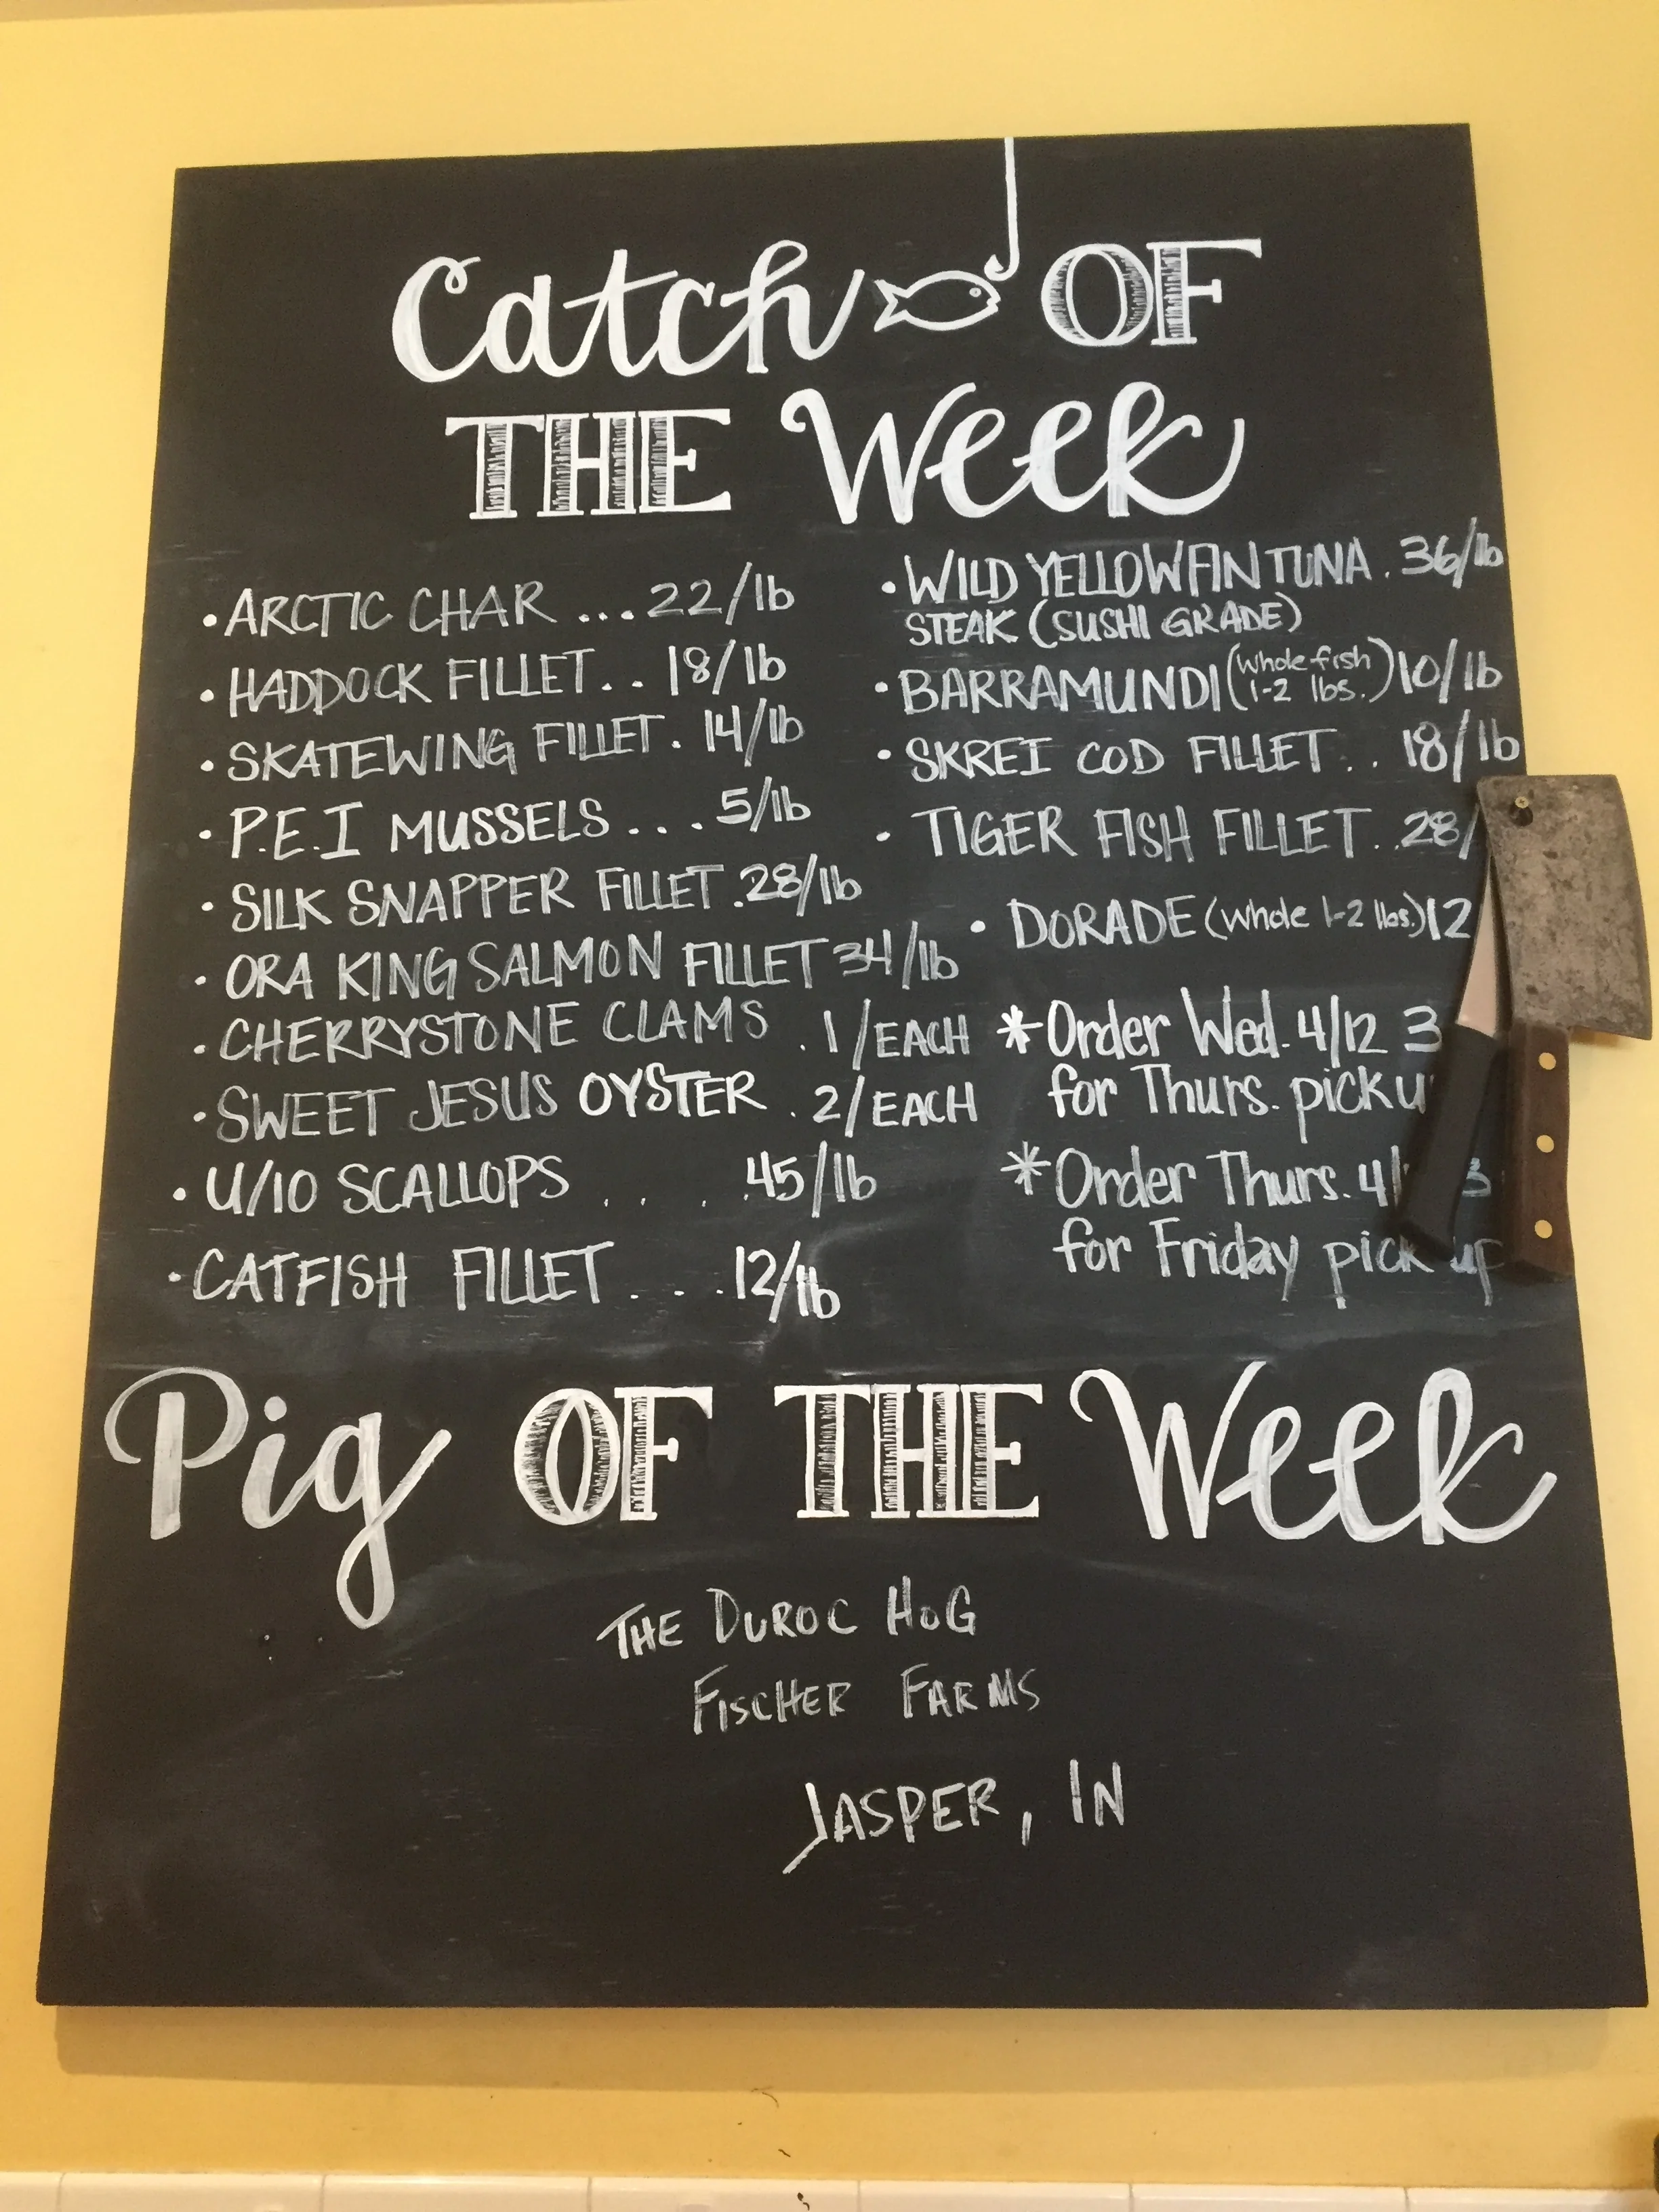 Catch OF
THE Week
• ARCTIC CHAR ... 22/lb
• HADDOCK FILLET.. 18/lb
• SKATEWING FILLET. 14/lb
• P.E.I MUSSELS ... 5/lb
• SILK SNAPPER FILLET. 28/lb
• ORA KING SALMON FILLET 34/lb
• CHERRYSTONE CLAMS . 1/EACH
• SWEET JESUS OYSTER . 2/EACH
• U/10 SCALLOPS . . . . 45/lb
• CATFISH FILLET . . . 12/lb
• WILD YELLOWFIN TUNA . 36/lb
STEAK (SUSHI GRADE)
• BARRAMUNDI (whole fish 10/lb
1-2 lbs.)
• SKREI COD FILLET .. 18/lb
• TIGER FISH FILLET .. 28/
• DORADE (whole 1-2 lbs.) 12
* Order Wed. 4/12 3
for Thurs. pick u
* Order Thurs. 4/ 3
for Friday pick up
Pig OF THE Week
THE DUROC HOG
FISCHER FARMS
JASPER, IN